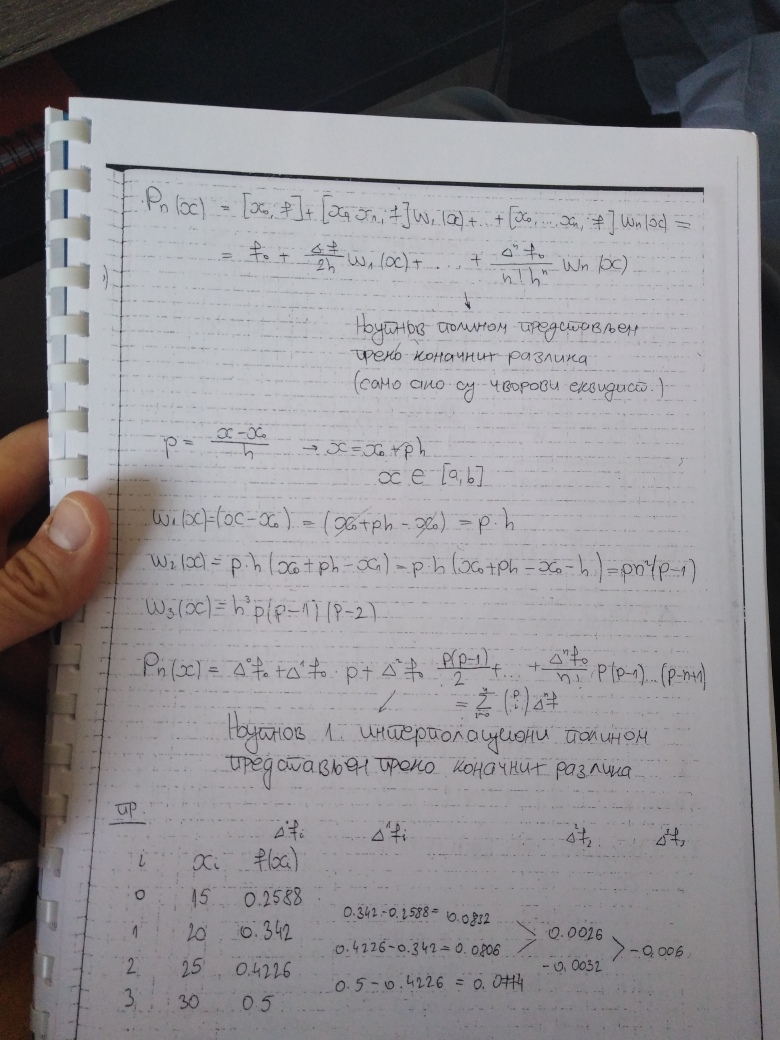 Pn(x) = [x₀, f] + [x₀, x₁, f]w₁(x) + ... + [x₀, ... xn, f] wn(x) =
= f₀ + Δf/2h w₁(x) + ... + Δⁿf₀/n!hⁿ wn(x)
Њутнов полином представљен
преко коначних разлика
(само ако су чворови еквидист.)
p = x-x₀/h → x = x₀ + ph
x ∈ [a, b]
w₁(x) = (x-x₀) = (x₀+ph-x₀) = p·h
w₂(x) = p·h (x₀+ph-x₁) = p·h (x₀+ph-x₀-h) = ph²(p-1)
w₃(x) = h³p(p-1)(p-2)
Pn(x) = Δ⁰f₀ + Δ¹f₀ · p + Δ²f₀ p(p-1)/2 + ... + Δⁿf₀/n! p(p-1)...(p-n+1)
= Σ (p i) Δⁱf
Њутнов 1. интерполациони полином
представљен преко коначних разлика
пр
Δ⁰fi Δ¹fi Δ²f₂ Δ³f₃
i xi f(xi)
0 15 0.2588
0.342-0.2588 = 0.0832
1 20 0.342 0.0026
0.4226-0.342 = 0.0806 -0.006
2 25 0.4226 -0.0032
0.5-0.4226 = 0.0774
3 30 0.5